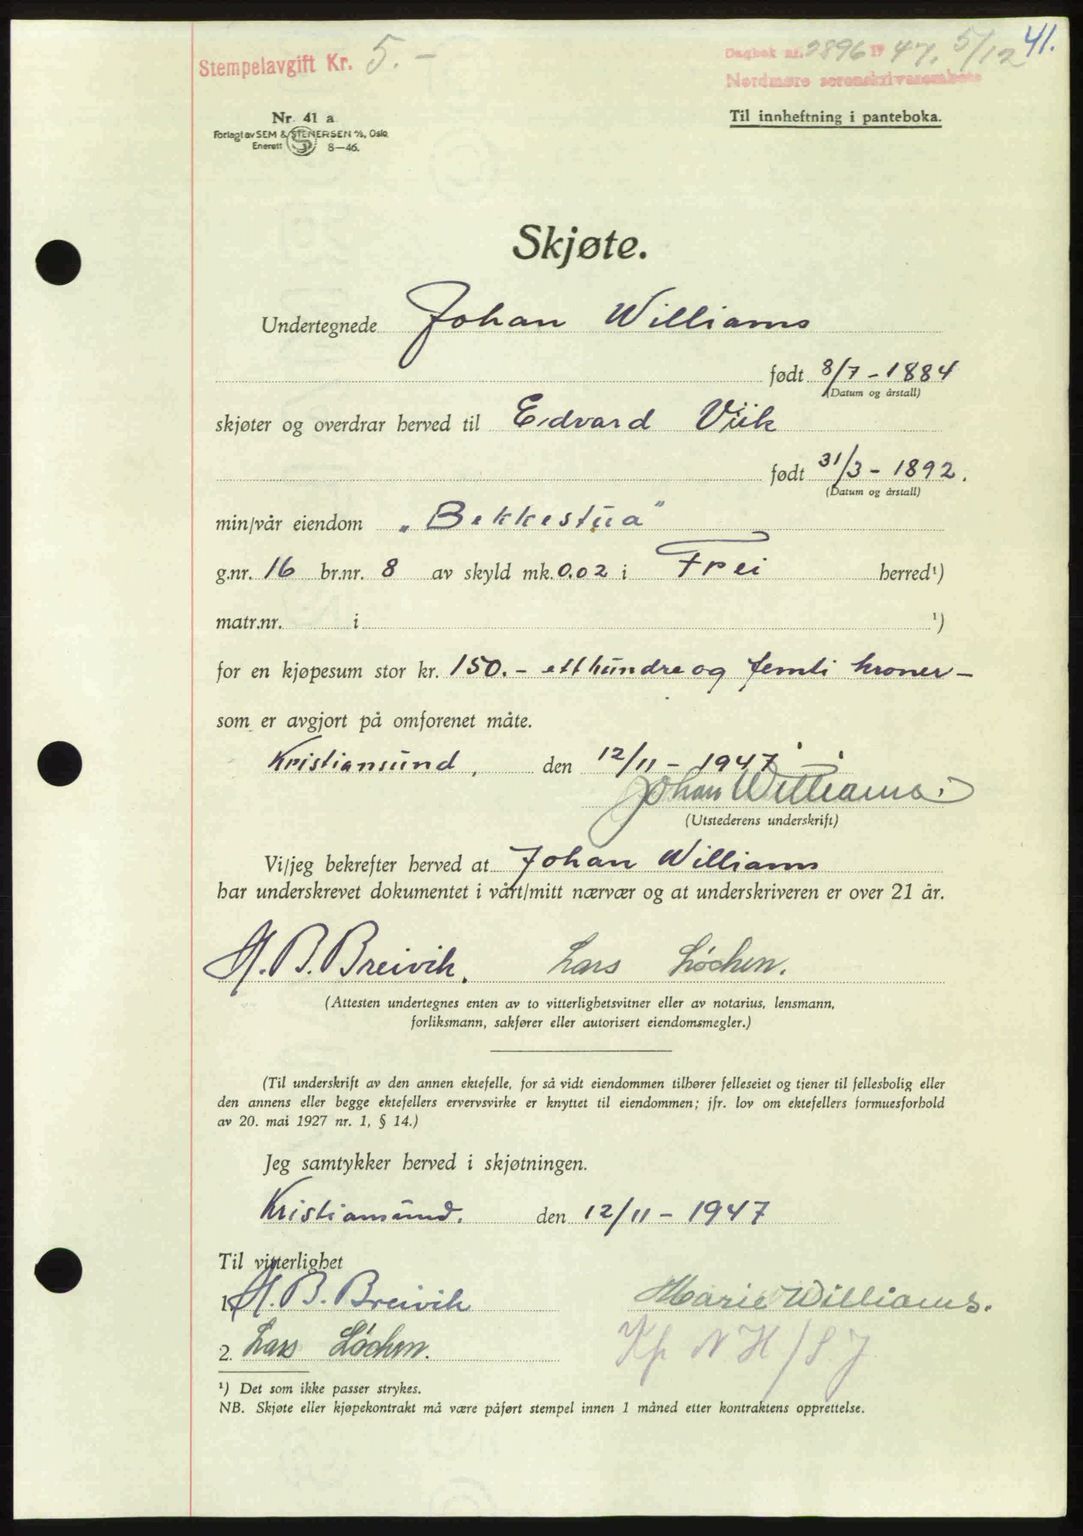 Stempelavgift Kr. 5.-
Dagbok nr. 2896 19 47. 5/12 41.
Nordmøre sorenskriverembete
Nr. 41 a
Forlagt av SEM & STENERSEN A/S, Oslo
Enerett 8—46.
Til innheftning i panteboka.
Skjøte.
Undertegnede Johan Williams
født 8/7 - 1884
(Datum og årstall)
skjøter og overdrar herved til Edvard Viik
født 31/3 - 1892.
(Datum og årstall)
min/vår eiendom „Bekkestua"
g.nr. 16 br.nr. 8 av skyld mk. 0.02 i Frei herred¹)
matr.nr. i ¹)
for en kjøpesum stor kr. 150.- etthundre og femti kroner -
som er avgjort på omforenet måte.
Kristiansund, den 12/11 - 1947
Johan Williams.
(Utstederens underskrift)
Vi/jeg bekrefter herved at Johan Williams
har underskrevet dokumentet i vårt/mitt nærvær og at underskriveren er over 21 år.
H. B. Breivik. Lars Løchen.
(Attesten undertegnes enten av to vitterlighetsvitner eller av notarius, lensmann,
forliksmann, sakfører eller autorisert eiendomsmegler.)
(Til underskrift av den annen ektefelle, for så vidt eiendommen tilhører felleseiet og tjener til fellesbolig eller
den annens eller begge ektefellers ervervsvirke er knyttet til eiendommen; jfr. lov om ektefellers formuesforhold
av 20. mai 1927 nr. 1, § 14.)
Jeg samtykker herved i skjøtningen.
Kristiansund. den 12/11 - 1947
Til vitterlighet
1. H. B. Breivik Marie Williams.
2. Lars Løchen. Kp NH/SJ
¹) Det som ikke passer strykes.
NB. Skjøte eller kjøpekontrakt må være påført stempel innen 1 måned etter kontraktens opprettelse.